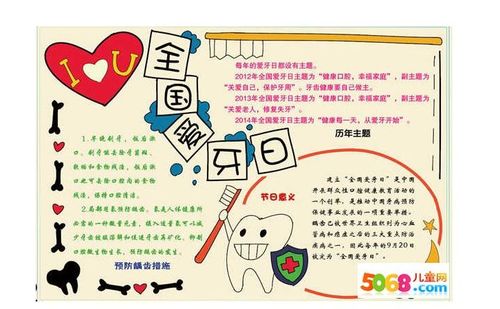 I U
全国爱牙日
每年的爱牙日都设有主题。
2012年全国爱牙日主题为“健康口腔，幸福家庭”，副主题为
“关爱自己，保护牙周”。牙齿健康要自己做主。
2013年全国爱牙日主题为“健康口腔，幸福家庭”，副主题为
“关爱老人，修复失牙”。
2014年全国爱牙日主题为“健康每一天，从爱牙开始”。
历年主题
1.早晚刷牙，饭后漱
口。刷牙能去除牙菌斑、
软垢和食物残渣，饭后漱
口也可去除口腔内的食物
残渣，保持口腔清洁。
2.局部用氟预防龋齿。氟是人体健康所
必需的一种微量元素，
预防龋齿措施
节日意义
建立“全国爱牙日”是中国
开展群众性口腔健康教育活动的
一个创举，是推动中国牙病预防
保健事业发展的一项重要举措。
龋齿已被世界卫生组织列为心血
管病和癌症之后的三大重点防治
疾病之一，因此每年的9月20日
被定为“全国爱牙日”。
5068儿童网
.com